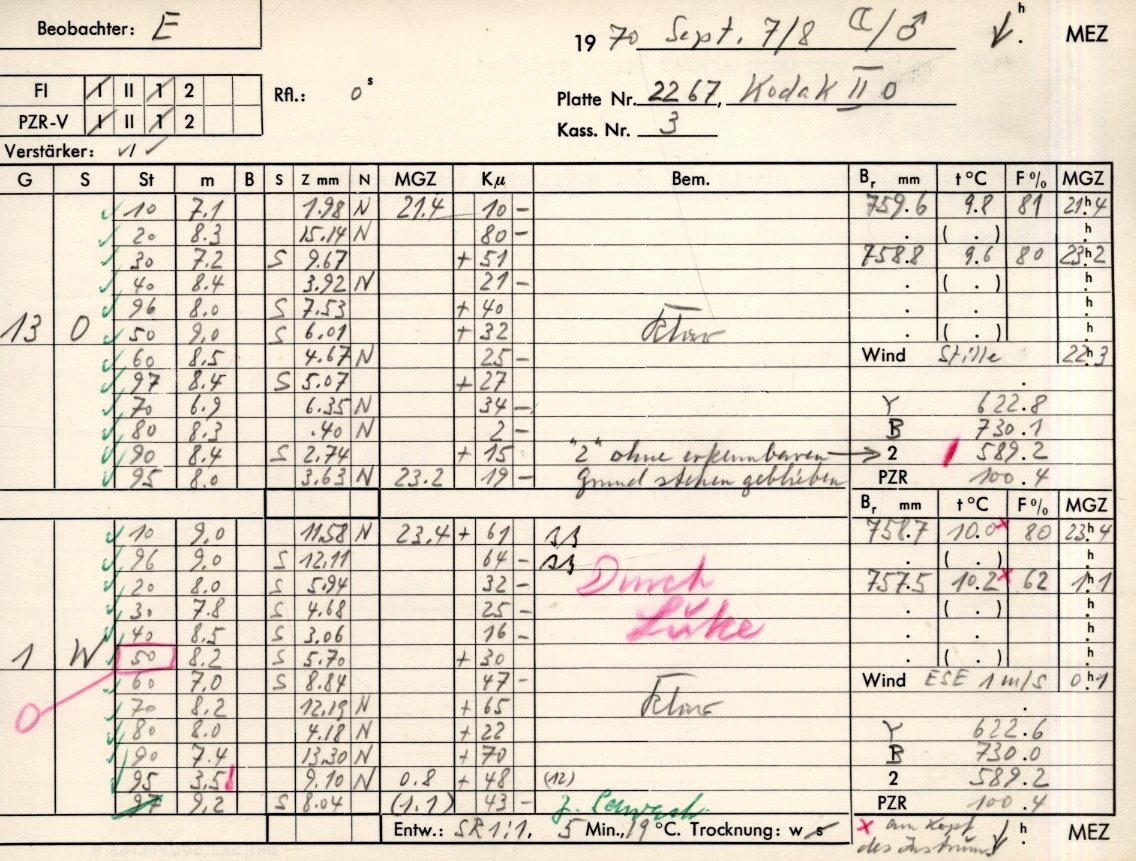 Beobachter: E
1970 Sept. 7/8 ☾/♂ h MEZ
FI I II 1 2
PZR-V I II 1 2
Rfl.: 0 s
Platte Nr. 2267, Kodak II O
Kass. Nr. 3
Verstärker: √1 ✓
G S St m B S Z mm N MGZ Kμ Bem. Br mm t °C F % MGZ
10 7.1 1.98 N 21.4 10 – 759.6 9.8 81 21h4
20 8.3 15.14 N 80 – ( . ) h
30 7.2 S 9.67 + 51 758.8 9.6 80 23h2
40 8.4 3.92 N 21 – . ( . ) h
96 8.0 S 7.53 + 40 . . h
13 O 50 9.0 S 6.01 + 32 klar . ( . ) h
60 8.5 4.67 N 25 – Wind Stille 22h3
97 8.4 S 5.07 + 27 .
70 6.9 6.35 N 34 – Y 622.8
80 8.3 .40 N 2 – B 730.1
90 8.4 S 2.74 + 15 "2" ohne erkennbaren → 2 589.2
95 8.0 3.63 N 23.2 19 – Grund stehen geblieben PZR 100.4
Br mm t °C F % MGZ
10 9.0 11.58 N 23.4 + 61 758.7 10.0 x 80 23h4
96 9.0 S 12.11 64 – ( . ) h
20 8.0 S 5.94 32 – Durch 757.5 10.2 x 62 1h1
30 7.8 S 4.68 25 – Lüke . ( . ) h
40 8.5 S 3.06 16 – . . h
1 W 50 8.2 S 5.70 + 30 . ( . ) h
60 7.0 S 8.84 47 – Wind ESE 1 m/s 0h1
70 8.2 12.19 N + 65 klar .
80 8.0 4.18 N + 22 Y 622.6
90 7.4 13.30 N + 70 B 730.0
95 3.5! 9.10 N 0.8 + 48 (12) 2 589.2
97 9.2 S 8.04 (1.1) 43 – PZR 100.4
Entw.: SR 1:1, 5 Min., 19 °C. Trocknung: w s h MEZ
x am Kopf
des Instrum.